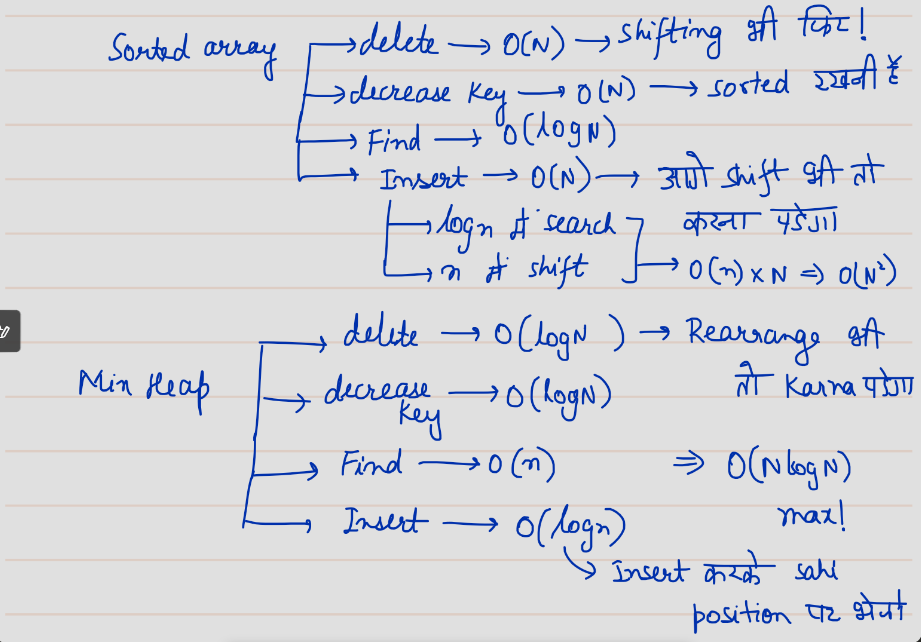 Sorted array
→ delete → O(N) → shifting भी फिर!
→ decrease key → O(N) → sorted रखनी है
→ Find → O(logN)
→ Insert → O(N) → आगे shift भी तो करना पड़ेगा
→ logn में search
→ n में shift
→ O(n) x N ⇒ O(N²)
Min Heap
→ delete → O(logN) → Rearrange भी तो Karna पड़ेगा
→ decrease key → O(logN)
→ Find → O(n)
⇒ O(N log N) max!
→ Insert → O(logn)
→ Insert करके sahi
position पर भेजो